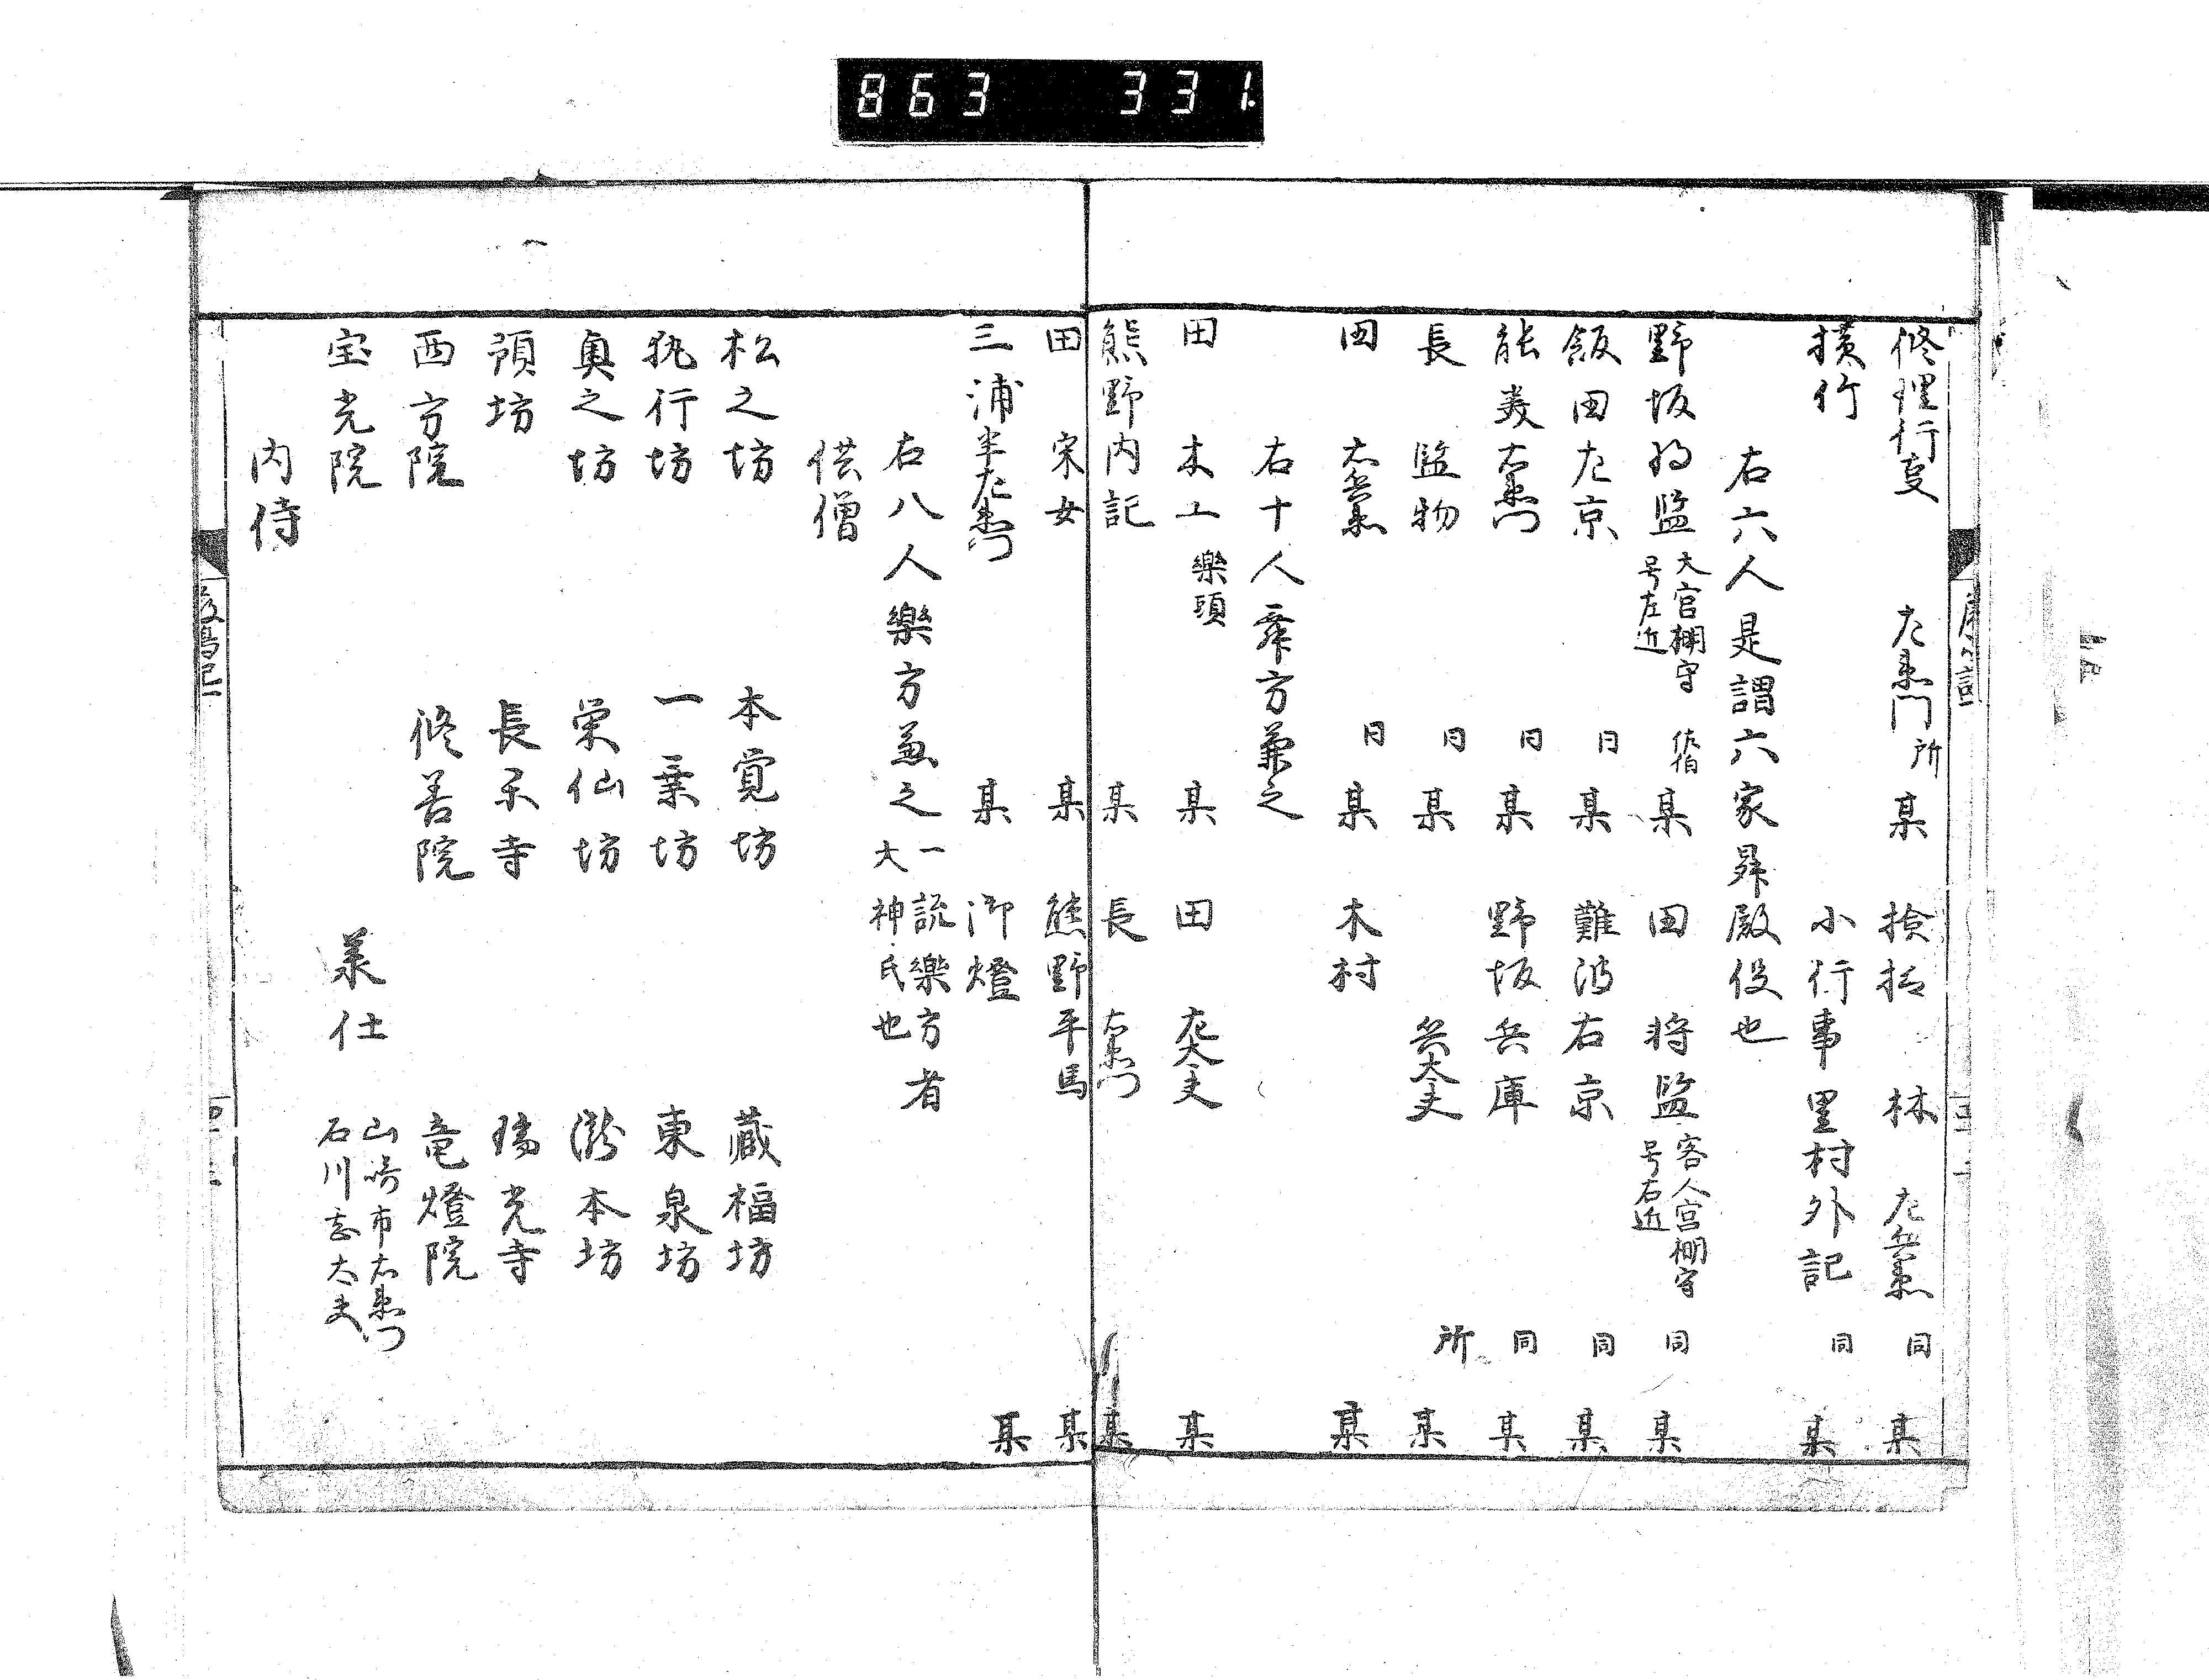 863 331.
修理行事 左衛門 所 某 撿挍 林 左兵衛 同 某
横竹 小行事 里村外記 同 某
右六人是謂六家昇殿役也
野坂将監 大宮棚守号左近 佐伯 某 田 将監 客人宮棚守号右近 同 某
飯田左京 同 某 難波右京 同 某
能美右衛門 同 某 野坂兵庫 同 某
長 監物 同 某 兵太夫 所 某
田 右兵衛 同 某 木村 某
右十人舞方兼之
田 木工 樂頭 某 田 左太夫 某
熊野内記 某 長 右衛門 某
田 宋女 某 熊野平馬 某
三浦半左衛門 某 御燈 某
右八人樂方兼之 一説樂方者大神氏也
供僧
松之坊 本覚坊 蔵福坊
执行坊 一乗坊 東泉坊
奥之坊 栄仙坊 瀧本坊
預坊 長禾寺 瑞光寺
西方院 修善院 竜燈院
宝光院 承仕 山崎市右衛門 石川志太夫
内侍